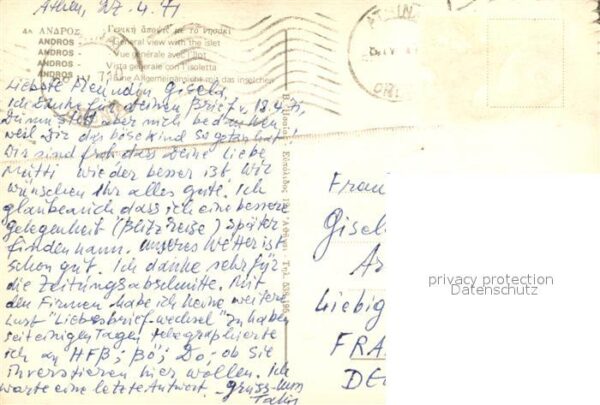 Athen, 27.4.71
4A ΑΝΔΡΟΣ - Γενική ἄποψις με το νησάκι
ANDROS - General view with the islet
ANDROS - Vue générale avec l'îlot
ANDROS - Vista generale con l'isoletta
ANDROS - Eine Allgemeinansicht mit das inselchen
Liebste Freundin Gisela,
Ich danke für deinen Brief v. 18.4.71,
aber mich
weil Dir das böse Kind so getan hat!
Wir sind froh dass Deine liebe
Mutti wieder besser ist. Wir
wünschen Ihr alles gute. Ich
glaube auch dass ich eine bessere
gelegenheit (Blitzreise) später
finden kann. unseres Wetter ist
schon gut. Ich danke sehr für
die Zeitungsabschnitte. Mit
den Firmen habe ich keine weitere
Lust "Liebesbrief-wechsel" zu haben
seit einigen Tagen telegraphierte
ich an HFB; BÖ; Do, ob Sie
ihr verstieren hier wollen. Ich
warte eine letzte Antwort. gruss-kuss
Takis
Frau
Gisela
Liebig
FRA
DE
privacy protection
Datenschutz